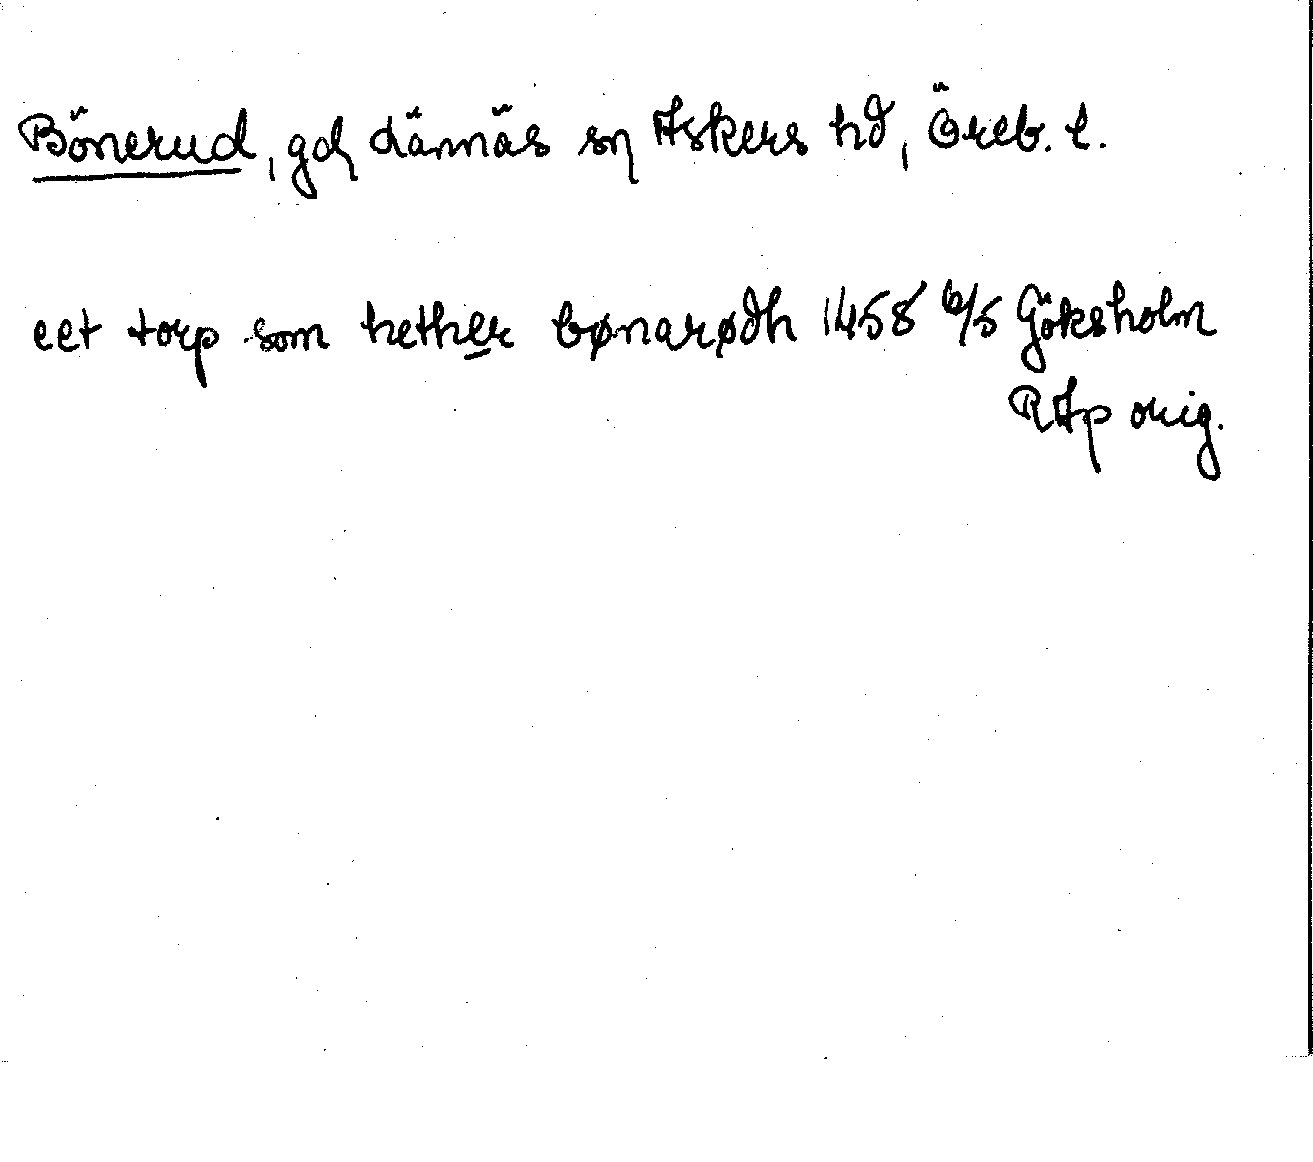 Bönerud, gd, Lännäs sn Askers hd, Öreb. l.
eet torp som hether bønarødh 1458 6/5 Göksholm
RAp orig.